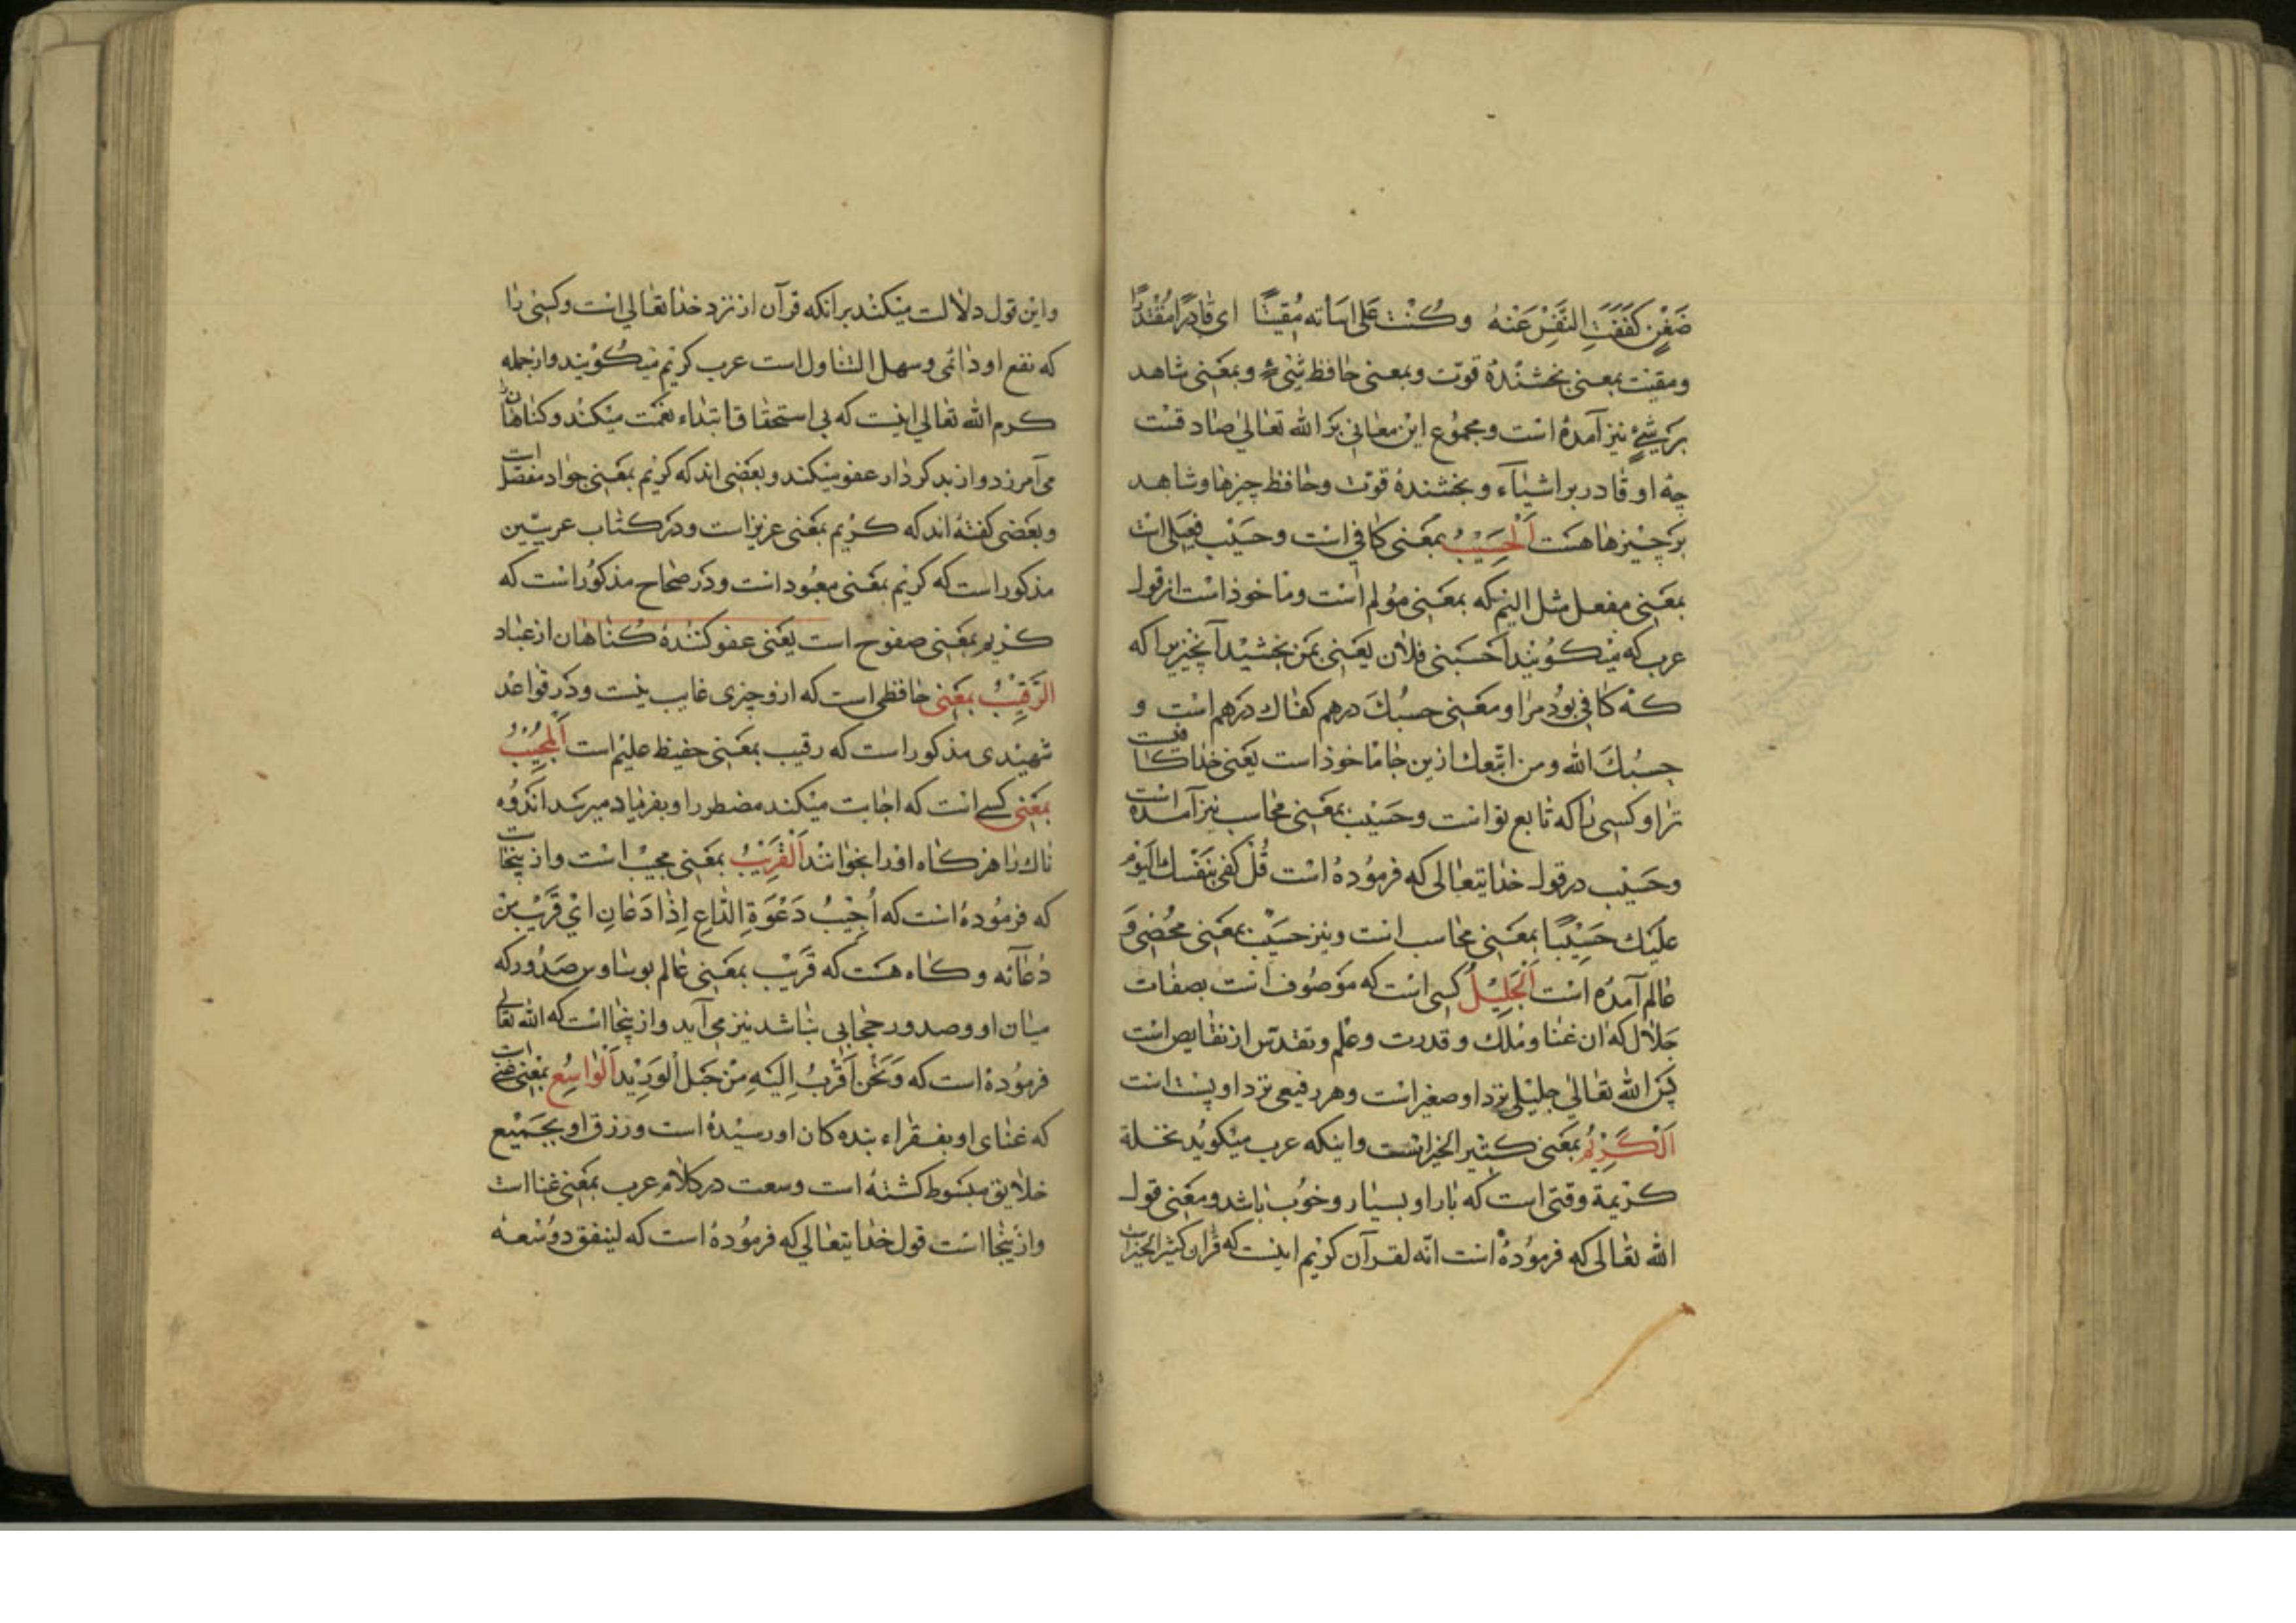 ضغن كففت النفس عنه وكنت على اساته مقيتا اى قادرا مقتدرا
ومقيت بمعنى بخشندهٔ قوت وبمعنى حافظ شیء وبمعنى شاهد
بر شیء نيز آمده است ومجموع اين معانى بر الله تعالى صادقست
چه او قادر بر اشياء و بخشندهٔ قوت وحافظ چيزها وشاهد
بر چيزها هست اَلْحَسِيْبُ بمعنى كافى است وحسيب فعيل است
بمعنى مفعل مثل اليم كه بمعنى مولم است وماخوذ است از قول
عرب كه ميكويند احسبنى فلان يعنى بمن بخشيد آنچيزيرا كه
كه كافى بود مرا و معنى حسبك درهم كفاك درهم است و
حسبك الله ومن اتبعك ازين جا ماخوذ است يعنى خدا كافيست
ترا و كسى را كه تابع تو است وحسيب بمعنى محاسب نيز آمده است
وحسيب در قول خدايتعالى كه فرموده است قل كفى بنفسك اليوم
عليك حسيبا بمعنى محاسب است ونيز حسيب بمعنى محصى و
عالم آمده است اَلْجَلِيْلُ كسى است كه موصوف است بصفات
جلال كه ان غنا وملك و قدرت وعلم وتقدس از نقايص است
پس الله تعالى جليلى نزد او صغير است وهر رفيعى نزد او پست است
اَلْكَرِيْمُ بمعنى كثير الخير است واينكه عرب ميكويد نخلة
كريمة وقتى است كه بار او بسيار وخوب باشد ومعنى قول
الله تعالى كه فرموده است انه لقرآن كريم اينست كه قران كثير الخير است
واين قول دلالت ميكند بر آنكه قرآن از نزد خدا تعالى است وكسى را
كه نفع او دائمى وسهل التناول است عرب كريم ميكويند واز جمله
كرم الله تعالى اينست كه بى استحقاق ابتداء نعمت ميكند وكناهان را
مى آمرزد واز بد كردار عفو ميكند وبعضى اند كه كريم بمعنى جواد مفضل است
وبعضى كفته اند كه كريم بمعنى عزيز است ودر كتاب عريبين
مذكور است كه كريم بمعنى معبود است ودر صحاح مذكور است كه
كريم بمعنى صفوح است يعنى عفو كنندهٔ كناهان از عباد
الرَّقِيْبُ بمعنى حافظى است كه ازو چيزى غايب نيست ودر قواعد
شهيدى مذكور است كه رقيب بمعنى حفيظ عليم است اَلْمُجِيْبُ
بمعنى كسى است كه اجابت ميكند مضطر را و بفرياد ميرسد اندوه
ناك را هر كاه او را بخوانند اَلْقَرِيْبُ بمعنى مجيب است واز ينجاست
كه فرموده است كه اُجِيْبُ دَعْوَةَ الدَّاعِ اِذَا دَعَانِ اى قريب من
دعائه وكاه هست كه قريب بمعنى عالم بوساوس صدور كه
ميان او وصدور حجابى نباشد نيز مى آيد واز ينجا است كه الله تعالى
فرموده است كه وَنَحْنُ اَقْرَبُ اِلَيْهِ مِنْ حَبْلِ الْوَرِيْدِ اَلْوَاسِعُ بمعنى غنى است
كه غناى او بفقراء بنده كان او رسيده است ورزق او بجميع
خلايق مبسوط كشته است وسعت در كلام عرب بمعنى غنا است
واز ينجا است قول خدايتعالى كه فرموده است كه لينفق ذو سعة